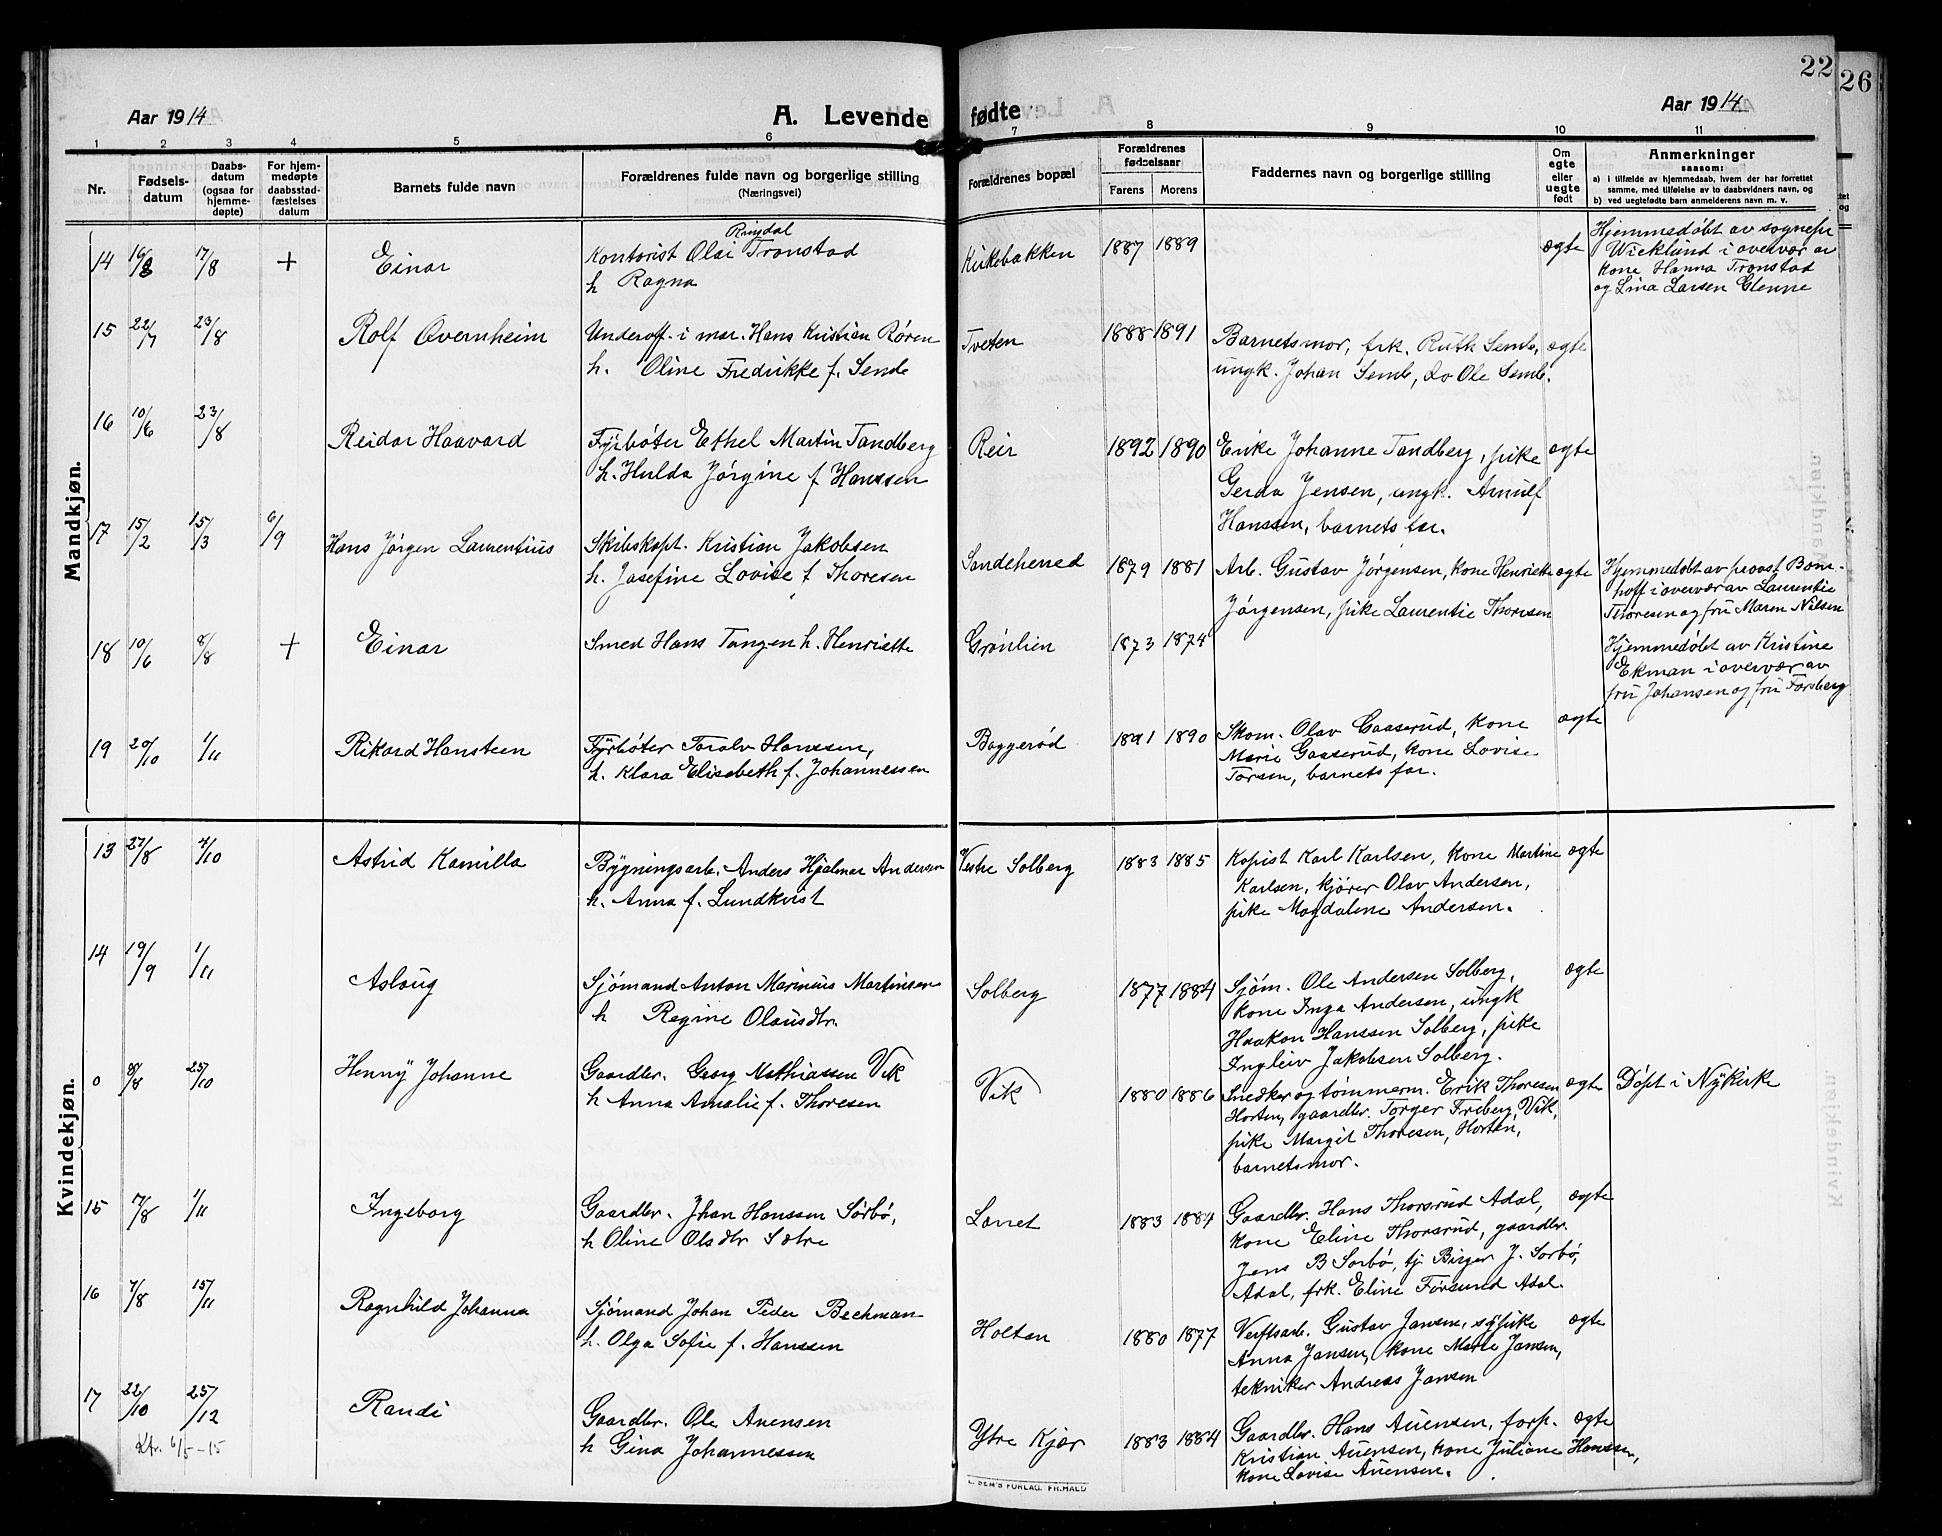 22
26
Aar 1914
A. Levende fødte
Aar 1914
1 2 3 4 5 6 7 8 9 10 11
Nr.
Fødsels-
datum
Daabs-
datum
(ogsaa for
hjemme-
døpte)
For hjem-
medøpte
daabsstad-
fæstelses
datum
Barnets fulde navn
Forældrenes fulde navn og borgerlige stilling
(Næringsvei)
Forældrenes bopæl
Forældrenes
fødselsaar
Farens Morens
Faddernes navn og borgerlige stilling
Om
egte
eller
uegte
født
Anmerkninger
saasom:
a) i tilfælde av hjemmedaab, hvem der har forrettet
samme, med tilføielse av to daabsvidners navn, og
b) ved uegtefødte barn anmelderens navn m. v.
Mandkjøn.
14 16/8 17/8 + Einar
Ringdal
Kontorist Olai Tronstad
h Ragna
Kirkebakken 1887 1889 ægte
Hjemmedøbt av sognepr
Wicklund i overvær av
kone Hanna Tronstad
og Lina Larsen Glenne
15 22/7 23/8 Rolf Overnheim
Underoff. i mar. Hans Kristian Røren
h. Oline Fredrikke f. Sende
Tveten 1888 1891
Barnetsmor, frk. Ruth Semb,
ungk. Johan Semb, do Ole Semb.
ægte
16 10/6 23/8 Reidar Haavard
Fyrbøter Ethel Martin Tandberg
h. Hulda Jørgine f Hanssen
Reir 1892 1890
Enke Johanne Tandberg, pike
Gerda Jensen, ungk. Arnulf
Hanssen, barnets far.
ægte
17 15/2 15/3 6/9 Hans Jørgen Laurentius
Skibskapt. Kristian Jakobsen
h. Josefine Lovise f Thoresen
Sandeherred 1879 1881
Arb. Gustav Jørgensen, kone Henriette
Jørgensen, pike Laurentie Thoresen
ægte
Hjemmedøbt av provst Bom-
hoff i overvær av Laurentie
Thoresen og fru Maren Nilsen
18 10/6 8/8 + Einar
Smed Hans Tangen h. Henriette
Grønlien 1873 1874
Hjemmedøbt av Kristine
Ekman i overvær av
fru Johansen og fru Forsberg
19 20/10 1/11 Rikard Hansteen
Fyrbøter Toralv Hanssen,
h. Klara Elisabeth f. Johannessen
Baggerød 1891 1890
Skom. Olav Gaaserud, kone
Marie Gaaserud, kone Lovise
Torsen, barnets far.
ægte
Kvindekjøn.
13 27/8 4/10 Astrid Kamilla
Bygningsarb. Anders Hjalmar Andersen
h. Anna f. Lundkvist
Vestre Solberg 1883 1885
Kopist Karl Karlsen, kone Martine
Karlsen, kjører Olav Andersen,
pike Magdalene Andersen.
ægte
14 19/9 1/11 Aslaug
Sjømand Anton Marinius Martinsen
h Regine Olausdtr.
Solberg 1877 1884
Sjøm. Ole Andersen Solberg,
kone Inga Andersen, ungk
Haakon Hanssen Solberg, pike
Ingleiv Jakobsen Solberg.
ægte
0 8/8 25/10 Henny Johanne
Gaardbr. Georg Mathiassen Vik
h Anna Amalie f. Thoresen
Vik 1880 1886
Snedker og tømmerm. Erik Thoresen
Horten, gaardbr. Torger Freberg, Vik,
pike Margit Thoresen, Horten,
barnetsmor.
ægte
Døpt i Nykirke
15 7/8 1/11 Ingeborg
Gaardbr. Johan Hanssen Sørbø,
h Oline Olsdtr Sætre
Lanet 1883 1884
Gaardbr. Hans Thorsrud Adal,
kone Eline Thorsrud, gaardbr.
Jens B Sorbø, tj. Birger J. Sorbø,
Adal, frk. Eline Førsund Adal.
ægte
16 7/8 15/11 Ragnhild Johanna
Sjømand Johan Peder Bechman
h. Olga Sofie f. Hanssen
Holtan 1880 1877
Verftsarb. Gustav Jansen, sypike
Anna Jansen, kone Marie Jansen,
tekniker Andreas Jansen
ægte
17 22/10 25/12 Randi
Gaardbr. Ole Auensen
h Gina Johannessen
Ytre Kjær 1883 1884
Gaardbr. Hans Auensen, forp.
Kristian Auensen, kone Juliane Hanssen,
kone Lovise Auensen.
ægte
6/5-15
FORLAG. FR.HALD